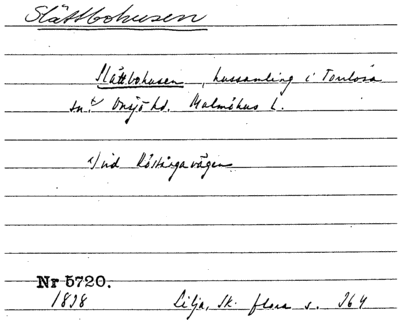 Slättbohusen
Slättbohusen, hussamling i Torrlösa
sn. t/ Onsjö hd. Malmöhus L.
t/ vid Röstångavägen
Nr 5720.
1838 Lilja, Sk. flora s. 264